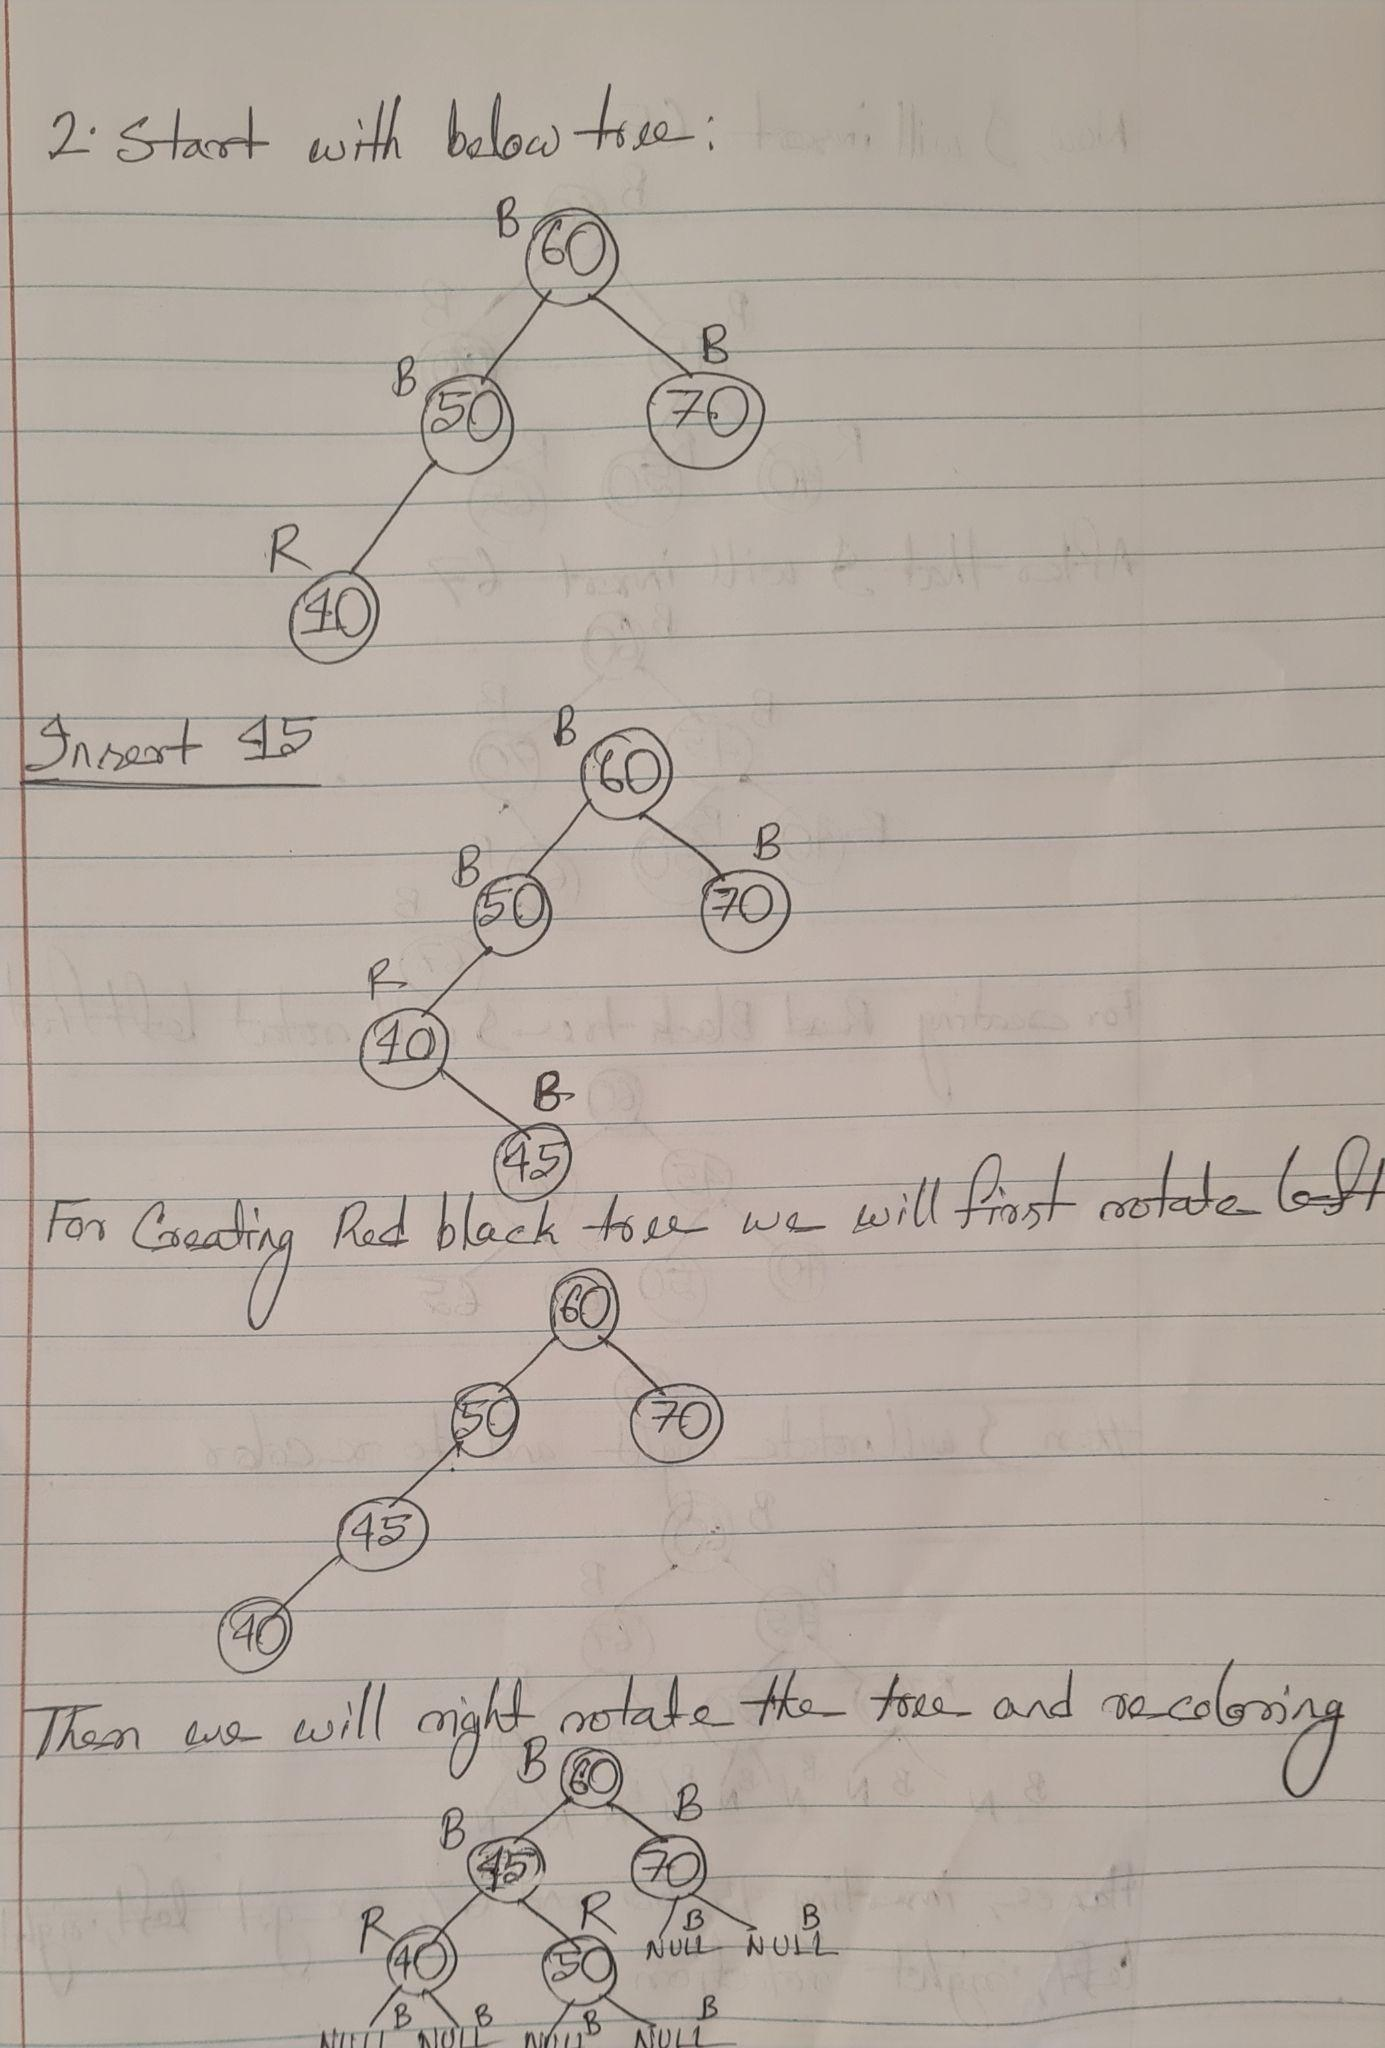 2. Start with below tree:
B 60
B 50 B 70
R 40
Insert 45
B 60
B 50 B 70
R 40
B 45
For Creating Red black tree we will first rotate left
60
50 70
45
40
Then we will right rotate the tree and recoloring
B 60
B 45 B 70
R 40 R 50 B B
NULL NULL
B B B B
NULL NULL NULL NULL